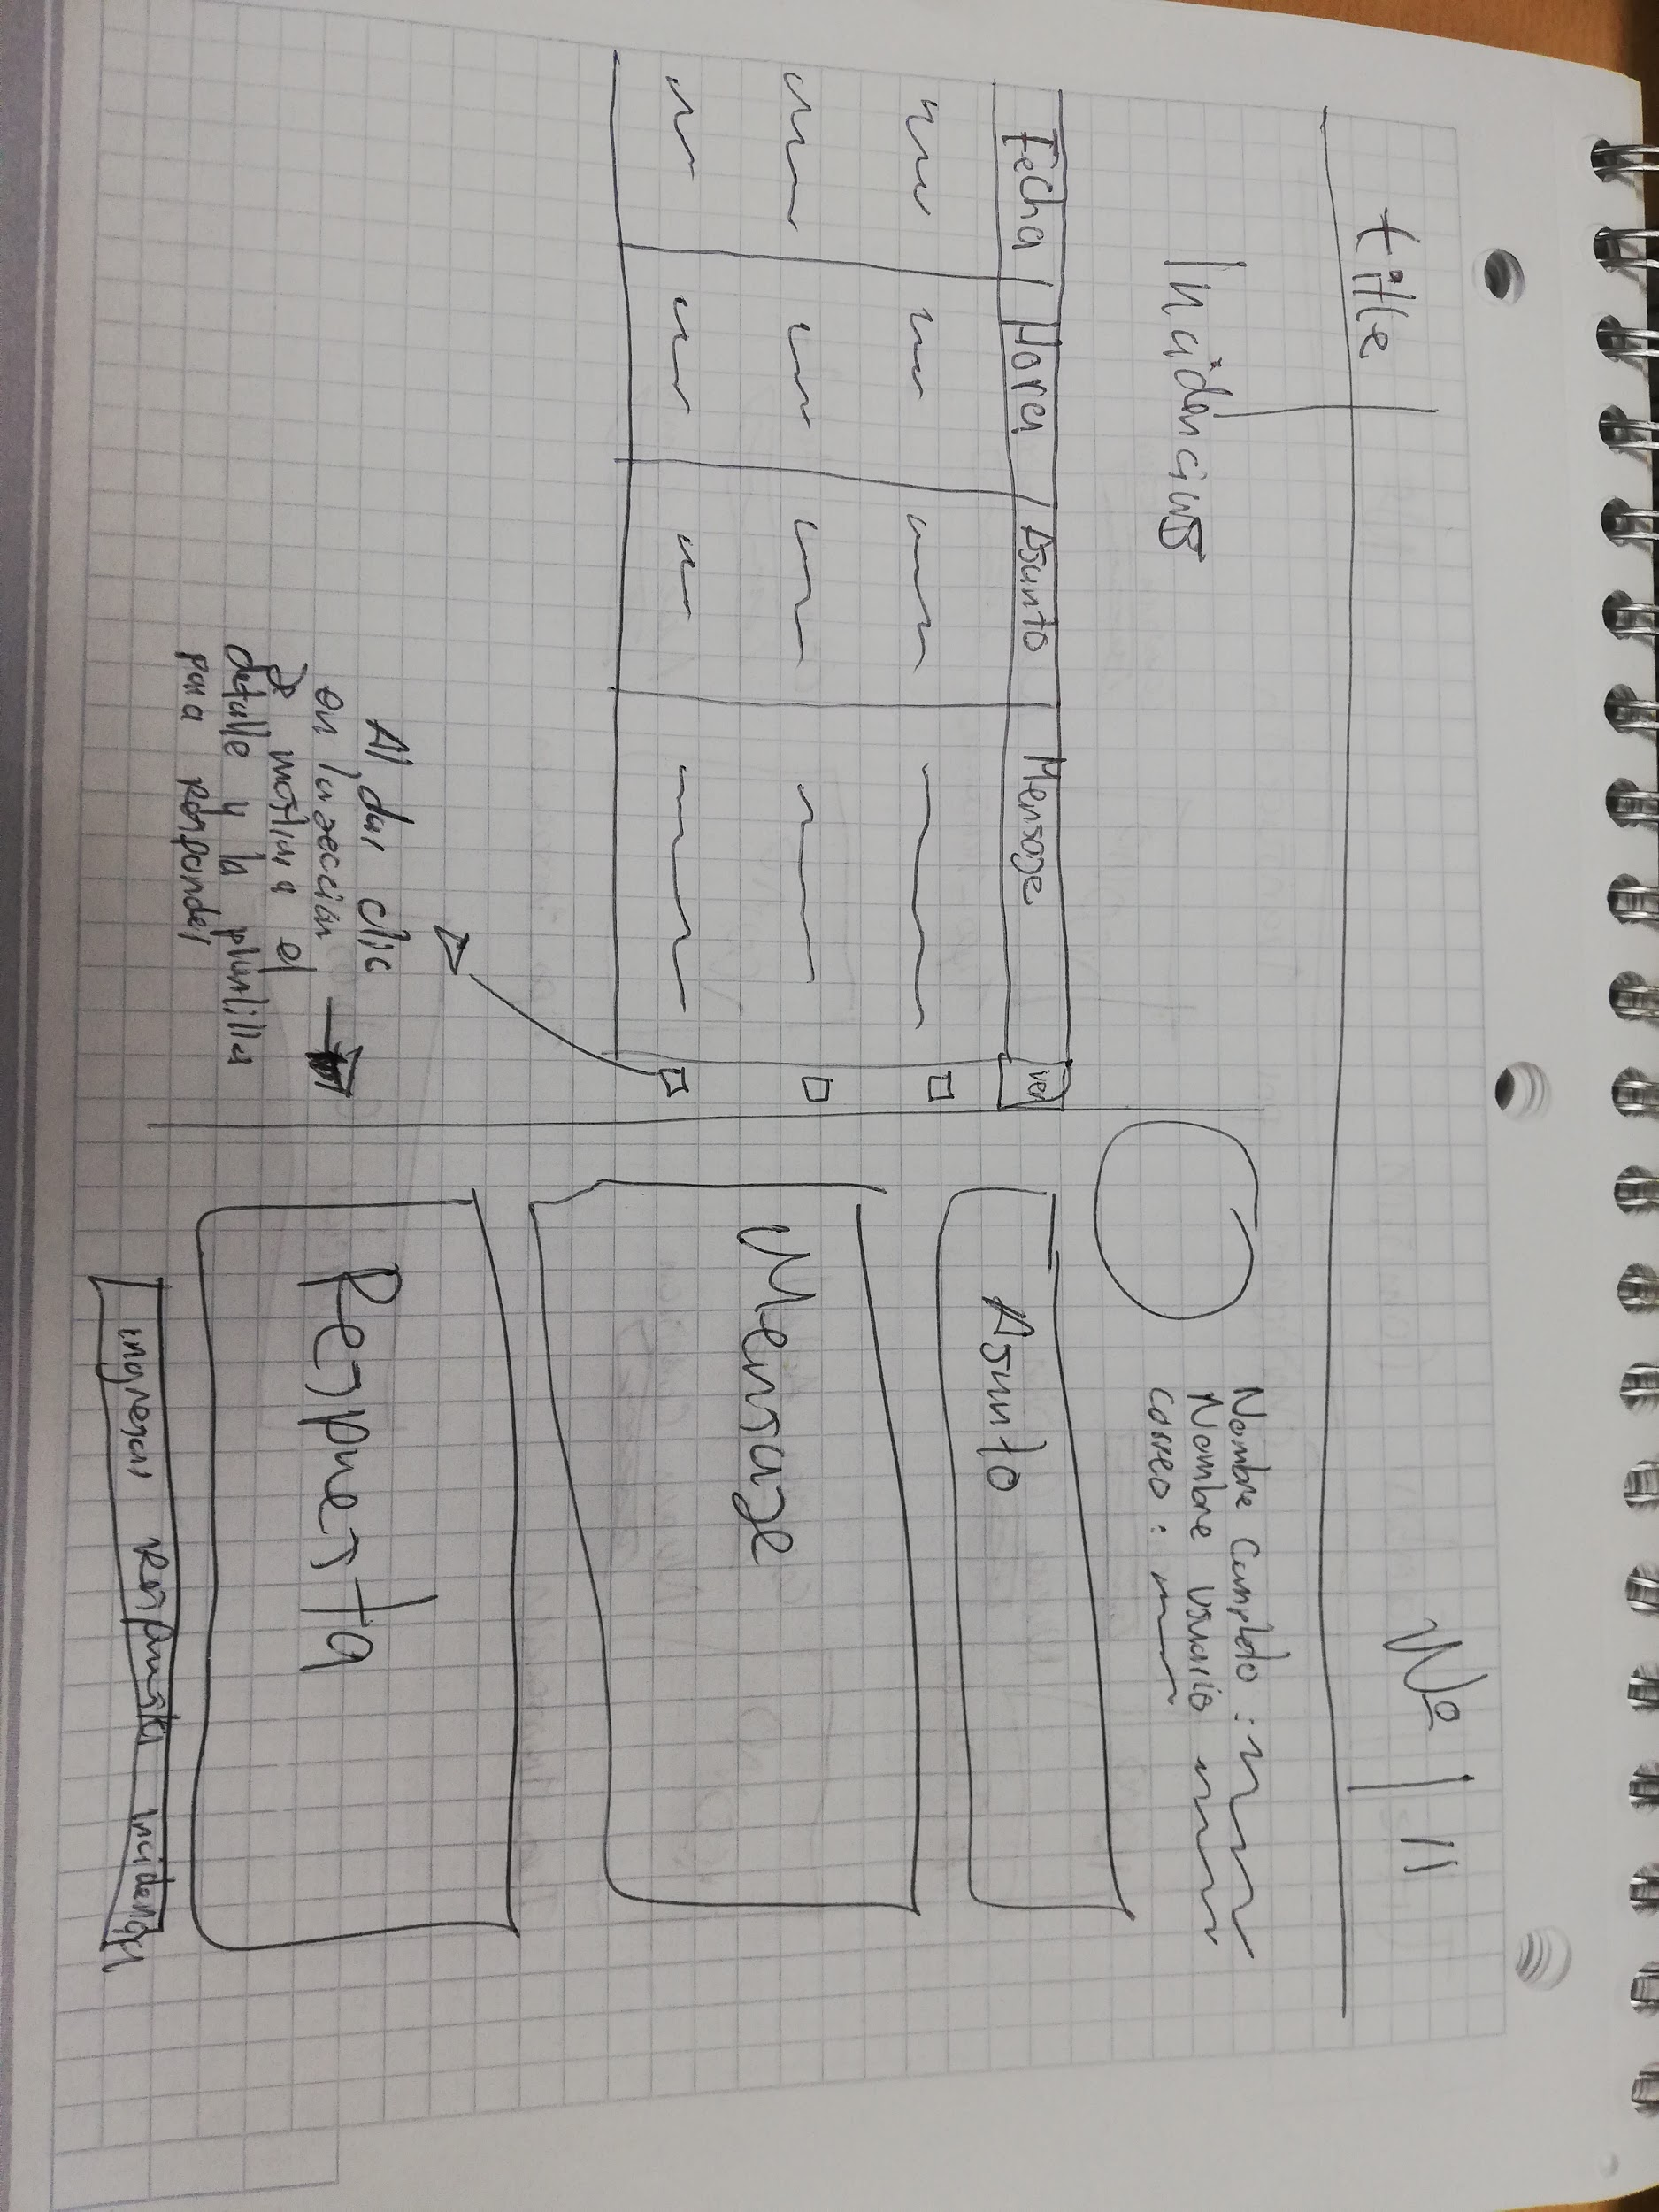 title
Nº | 11
Incidencias
Fecha | Hora | Asunto | Mensaje | ver
Al dar clic
en la sección
mostrara el
detalle y la plantilla
para Responder
Nombre Completo :
Nombre Usuario
correo :
Asunto
Mensaje
Respuesta
ingresar Respuesta incidencia